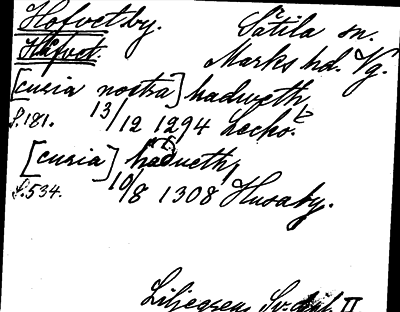 Hofvet.by. Sätila sn.
Håfvet. Marks hd. Vg.
[curia nostra] hadweth,
s.181. 13/12 1294 Lecho.
[curia] hadueth,
s.534. 10/8 1308 Husaby.
Liljegrens Sv. dipl. II